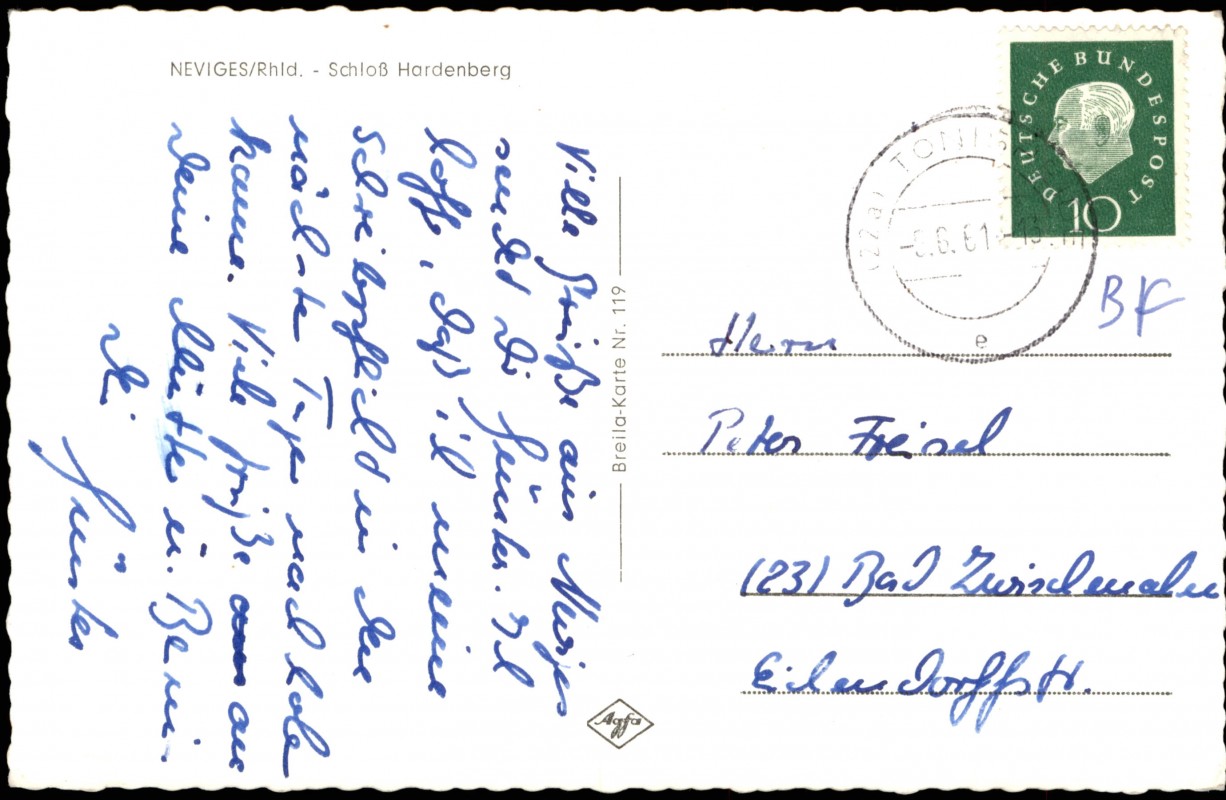 NEVIGES/Rhld. - Schloß Hardenberg
Viele Grüße aus Neviges
sendet Dir Günter. Ich
hoffe, daß ich meine
Schreibpflicht in den
nächsten Tagen nachholen
kann. Viele Grüße an
Deine Mutter u. Benni.
Dein
Günter
Breila-Karte Nr. 119
Agfa
DEUTSCHE BUNDESPOST
10
(22a) TÖNIS
6.61
e
BK
Herrn
Peter Freisel
(23) Bad Zwischenahn
Eichendorffstr.